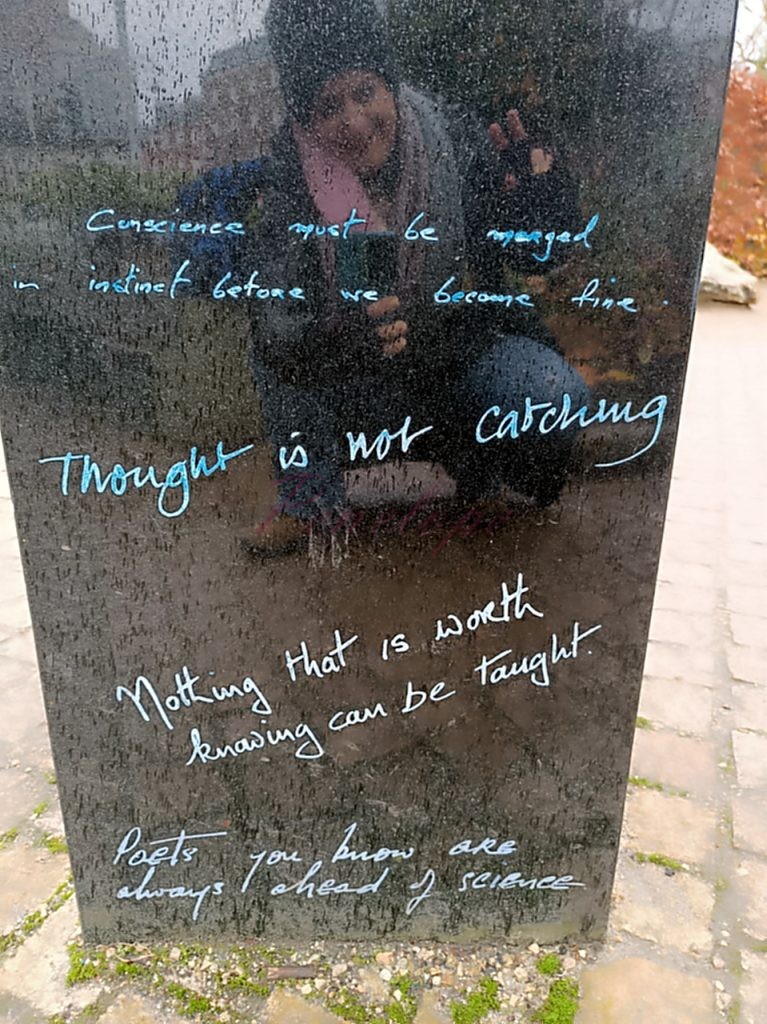 Conscience must be merged
in instinct before we become fine.
Thought is not catching
Nothing that is worth
knowing can be taught.
Poets you know are
always ahead of science